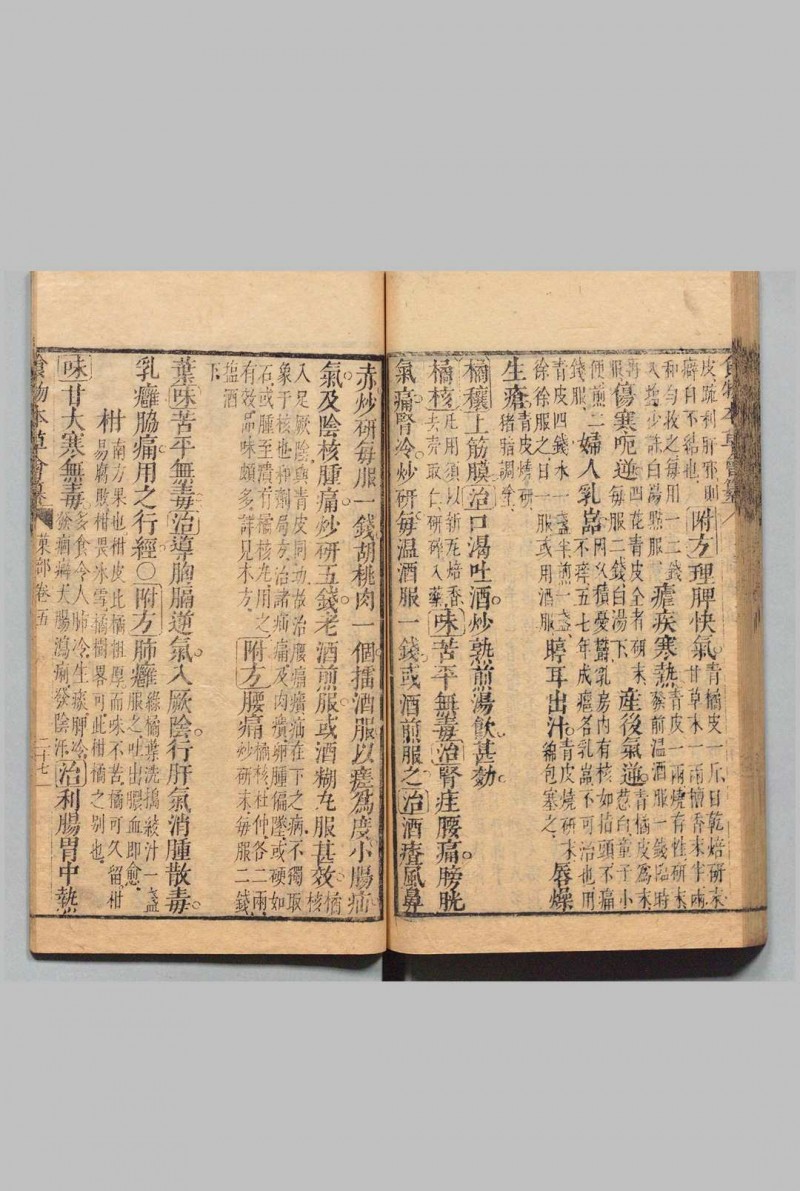 皮疏利肝邪則
癖自不結也
附方理脾快氣青橘皮一斤日乾焙研末
甘草末一兩檀香末半兩
和勻收之每用一二錢
入塩少許白湯點服
瘧疾寒熱青皮一兩燒存性研末
發前温酒服一錢臨時
再服
傷寒呃逆四花青皮全者研末
每服二錢白湯下
産後氣逆青橘皮爲末
葱白童子小
便煎二
錢服
婦人乳嵓因久積憂鬱乳房内有核如指頭不痛
不痒五七年成癰名乳嵓不可治也用
青皮四錢水一盞半煎一盞
徐徐服之日一服或用酒服
聤耳出汁青皮燒研末
綿包塞之
唇燥
生瘡青皮燒研
猪脂調塗
橘穰上筋膜治口渴吐酒炒熟煎湯飲甚効
橘核凡用須以新瓦焙香
去壳取仁研碎入藥
味苦平無毒治腎疰腰痛膀胱
氣痛腎冷炒研每温酒服一錢或酒煎服之治酒㾴風鼻
赤炒研每服一錢胡桃肉一個擂酒服以瘥爲度小腸疝
氣及陰核腫痛炒研五錢老酒煎服或酒糊丸服甚效橘
核
入足厥陰與青皮同功故治腰痛㿗疝在下之病不獨取
象于核也和劑局方治諸疝痛及内㿗卵腫偏墜或硬如
石或腫至潰有橘核丸用之
有效品味頗多詳見本方
附方腰痛橘核杜仲各二兩
炒研末每服二錢
塩酒
下
葉味苦平無毒治導胸膈逆氣入厥陰行肝氣消腫散毒
乳癰脇痛用之行經〇附方肺癰綠橘葉洗搗絞汁一盞
服之吐出膿血即愈
柑南方果也柑皮比橘粗厚而味不苦橘可久留柑
易腐敗柑畏冰雪橘樹畧可此柑橘之别也
味甘大寒無毒多食令人肺冷生痰脾冷
發痼癖大腸瀉痢發陰汗
治利腸胃中熱
食物本草會纂
菓部卷五
二十七